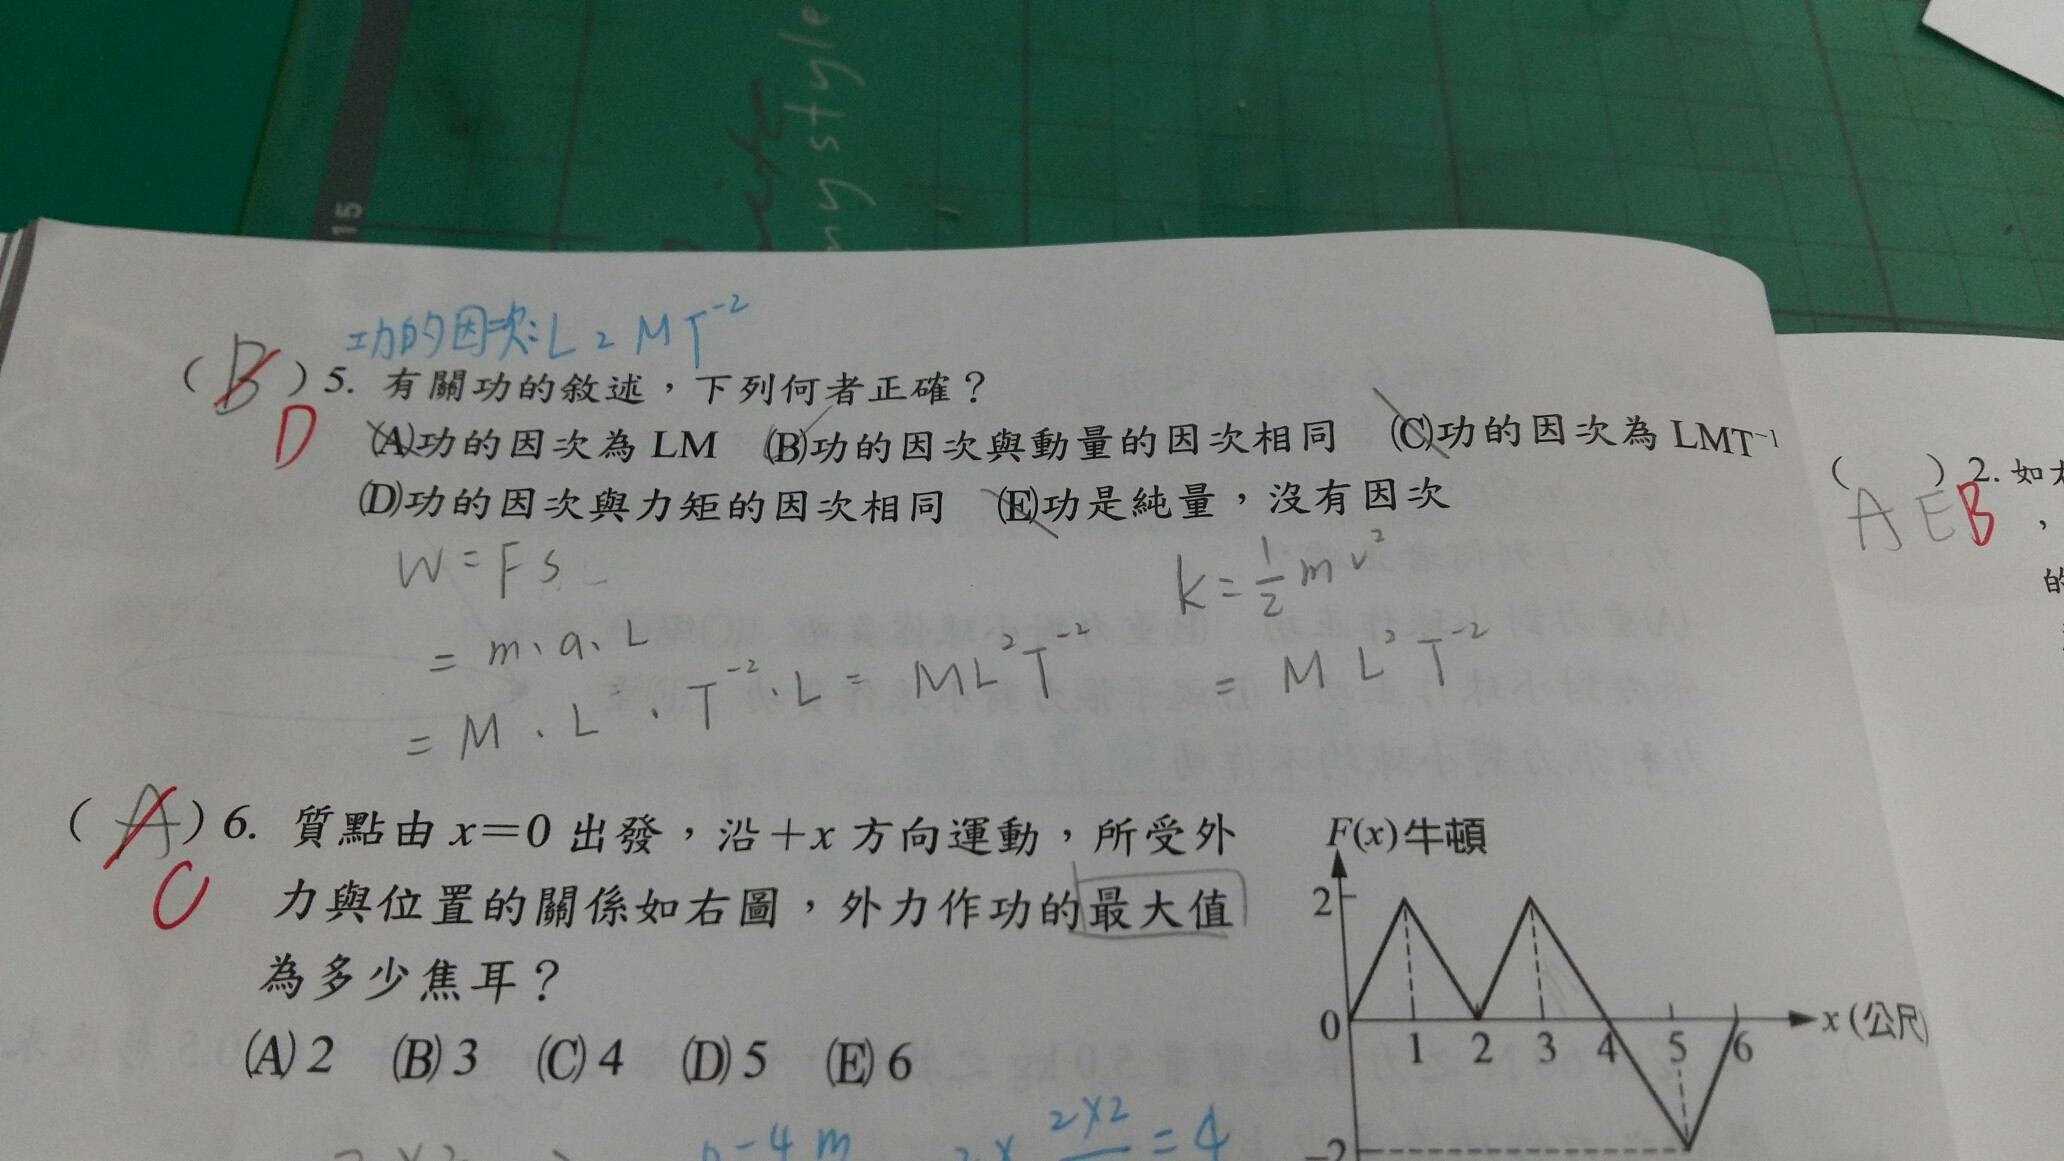 15
my style
功的因次:L2MT⁻²
(B)5. 有關功的敘述,下列何者正確?
D
(A)功的因次為 LM (B)功的因次與動量的因次相同 (C)功的因次為 LMT⁻¹
(D)功的因次與力矩的因次相同 (E)功是純量,沒有因次
W = F S L
= m、a、L
= M、L、T⁻²、L = ML²T⁻²
k = 1/2 m v²
= M L² T⁻²
(A)6. 質點由 x=0 出發,沿+x 方向運動,所受外
C
力與位置的關係如右圖,外力作功的最大值
為多少焦耳?
(A) 2 (B) 3 (C) 4 (D) 5 (E) 6
F(x)牛頓
2
0 1 2 3 4 5 6 x (公尺)
-2
-4m
2×2 = 4
( )2. 如
A E B
,
的